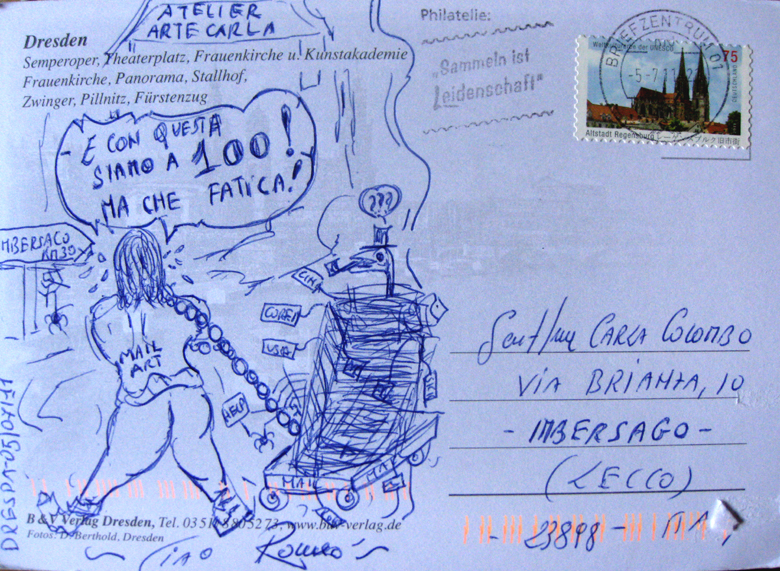 ATELIER
ARTECARLA
Dresden
Semperoper, Theaterplatz, Frauenkirche u. Kunstakademie
Frauenkirche, Panorama, Stallhof,
Zwinger, Pillnitz, Fürstenzug
E CON QUESTA
SIAMO A 100!
MA CHE FATICA!
IMBERSAGO
KM 30
???
MAIL
ART
COREA
USA
HELP
MAIL
DRESDA-05/07/11
B & V Verlag Dresden, Tel. 0351
www.buv-verlag.de
Fotos: D. Berthold, Dresden
CIAO Romeo
Philatelie:
„Sammeln ist
Leidenschaft"
BRIEFZENTRUM 01
-5-7.11
Welterbe der UNESCO
75
Altstadt Regensburg
CARLA COLOMBO
VIA BRIANZA, 10
- IMBERSAGO -
(LECCO)
- 23898 -